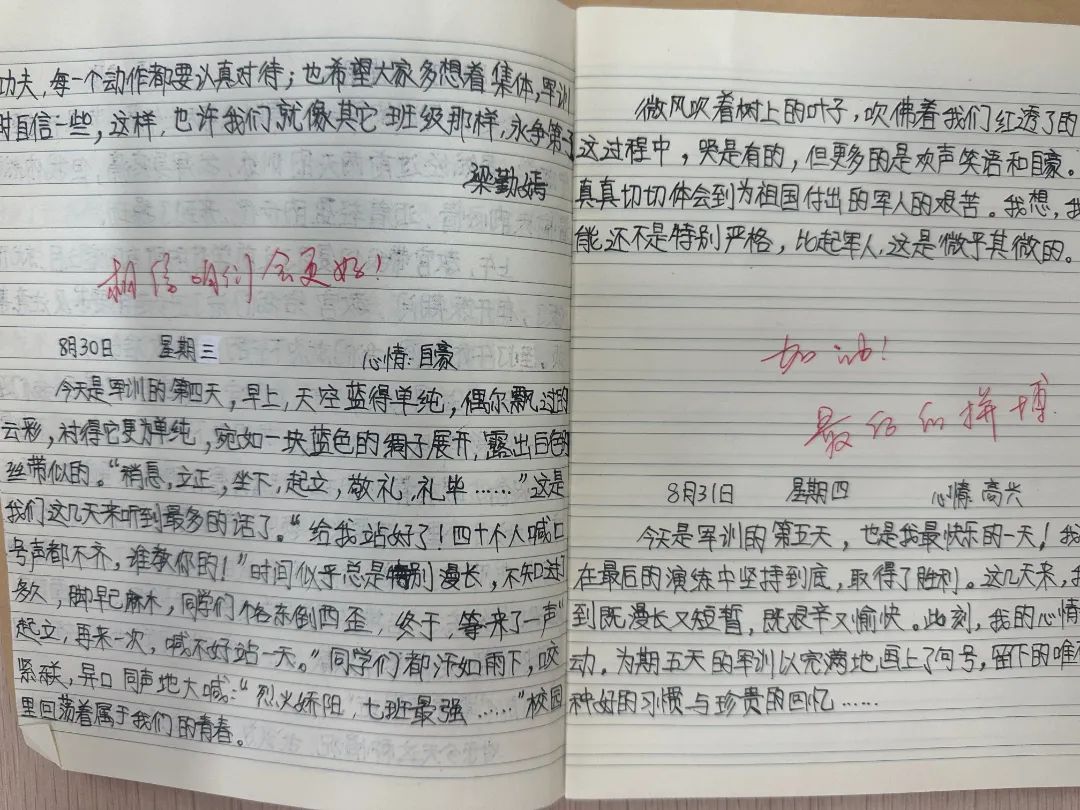 功夫,每一个动作都要认真对待;也希望大家多想着集体,军训
时自信一些,这样,也许我们就像其它班级那样,永争第一
梁勤嫣
相信咱们会更好!
8月30日 星期三 心情:自豪
今天是军训的第四天,早上,天空蓝得单纯,偶尔飘过的
云彩,衬得它更为单纯,宛如一块蓝色的绸子展开,露出白色的
丝带似的。“稍息,立正,坐下,起立,敬礼,礼毕……”这是
我们这几天来听到最多的话了。“给我站好了!四十个人喊口
号声都不齐,谁教你的!”时间似乎总是特别漫长,不知过了
多久,脚早已麻木,同学们个个东倒西歪,终于,等来了一声“
起立,再来一次,喊不好站一天。”同学们都汗如雨下,咬
紧牙,异口同声地大喊:“烈火娇阳,七班最强……”校园
里回荡着属于我们的青春。
微风吹着树上的叶子,吹佛着我们红透了的
这过程中,哭是有的,但更多的是欢声笑语和自豪。
真真切切体会到为祖国付出的军人的艰苦。我想,我
能还不是特别严格,比起军人,这是微乎其微的。
加油!
最后的拼搏
8月31日 星期四 心情 高兴
今天是军训的第五天,也是我最快乐的一天!我
在最后的演练中坚持到底,取得了胜利。这几天来,我
到既漫长又短暂,既艰辛又愉快。此刻,我的心情
动。为期五天的军训以完满地画上了句号,留下的唯
种好的习惯与珍贵的回忆……